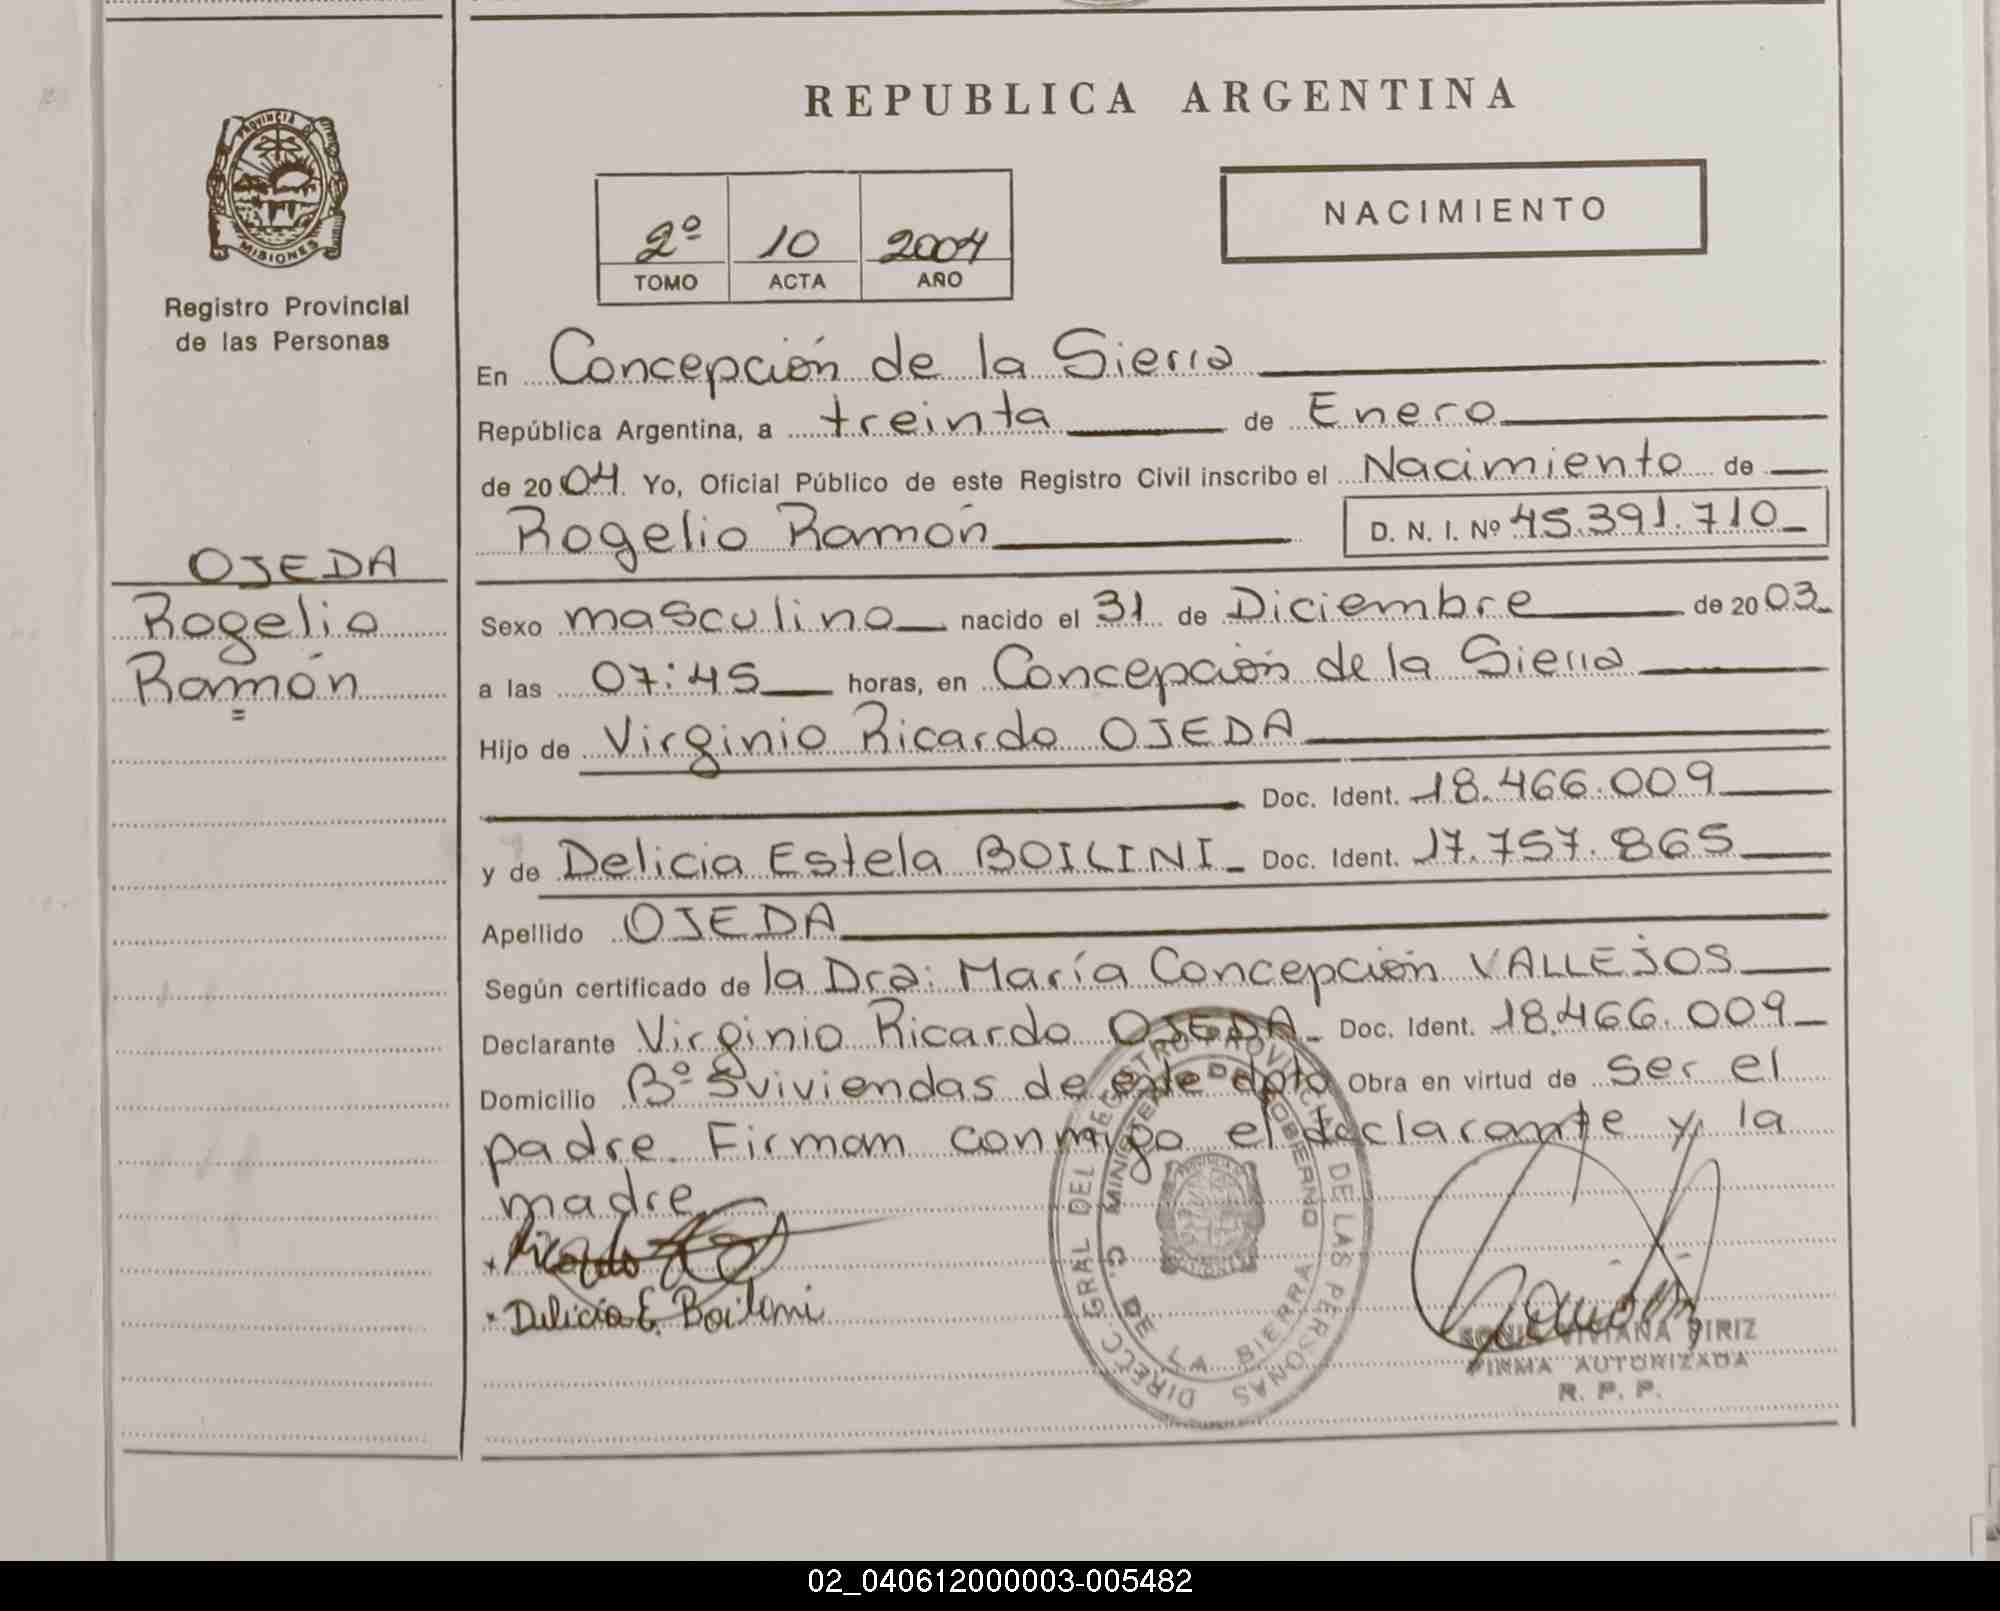 REPUBLICA ARGENTINA
PROVINCIA DE
MISIONES
Registro Provincial
de las Personas
NACIMIENTO
2º 10 2004
TOMO ACTA AÑO
En Concepción de la Sierra
República Argentina, a treinta de Enero
de 2004. Yo, Oficial Público de este Registro Civil inscribo el Nacimiento de
Rogelio Ramón D. N. I. Nº 45.391.710
OJEDA
Rogelio
Ramón
Sexo masculino nacido el 31 de Diciembre de 2003
a las 07:45 horas, en Concepción de la Sierra
Hijo de Virginio Ricardo OJEDA
Doc. Ident. 18.466.009
y de Delicia Estela BOILINI Doc. Ident. 17.757.865
Apellido OJEDA
Según certificado de la Dra: María Concepción VALLEJOS
Declarante Virginio Ricardo OJEDA Doc. Ident. 18.466.009
Domicilio Bº 5 viviendas de este dpto Obra en virtud de ser el
padre. Firman conmigo el declarante y la
madre
Ricardo
Delicia E. Boilini
DIRECC. GRAL DEL REGISTRO PROVINCIAL DE LAS PERSONAS
MINISTERIO DE GOBIERNO
C. DE LA SIERRA
SONIA VIVIANA PIRIZ
FIRMA AUTORIZADA
R. P. P.
02_040612000003-005482